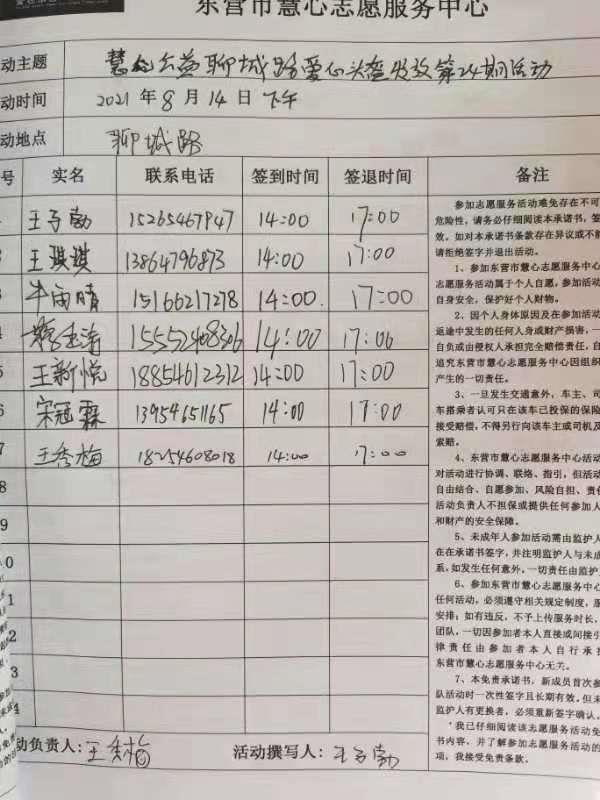 东营市慧心志愿服务中心
动主题 慧心公益聊城路爱心头盔发放第24期活动
动时间 2021年8月14日下午
动地点 聊城路
号 实名 联系电话 签到时间 签退时间 备注
王子勋 15265467947 14:00 17:00
王琪琪 13864796873 14:00 17:00
3 牛雨晴 15166217278 14:00. 17:00
4 15552408306 14:00 17:00
5 王新悦 18854612312 14:00 17:00
6 宋冠霖 13954651165 14:00 17:00
7 王秀梅 18254608018 14:00 17:00
8
9
0
1
2
3
4
参加志愿服务活动难免存在不可
危险性,请务必仔细阅读本承诺书,签
效。如对本承诺书条款存在异议或不能
请拒绝签字并退出活动。
1、参加东营市慧心志愿服务中心
志愿服务活动属于个人自愿,参加活动
自身安全,保护好个人财物。
2、因个人身体原因及在参加活动
返途中发生的任何人身或财产损害,一
自负或由侵权人承担完全赔偿责任,自
追究东营市慧心志愿服务中心因组织
产生的一切责任。
3、一旦发生交通意外,车主、司
车搭乘者认可只在该车已投保的保险
接受赔偿,不得另行向该车主或司机及
索赔。
4、东营市慧心志愿服务中心活动
对活动进行协调、联络、指引,但活动
自由结合、自愿参加、风险自担、责任
活动负责人不担保或提供任何参加人
和财产的安全保障。
5、未成年人参加活动需由监护人
在在承诺书签字,并注明监护人与未成
系,如发生任何意外,一切责任由监护人
6、参加东营市慧心志愿服务中心
任何活动,必须遵守相关规定制度,服
安排;如有违反,不予上传服务时长,
团队,一切因参加者本人直接或间接引
律责任由参加者本人自行承担
东营市慧心志愿服务中心无关。
7、本免责承诺书,新成员首次参
队活动时一次性签字且长期有效。但未
监护人有更换者,必须重新签字确认。
我已仔细阅读该志愿服务活动免
书内容,并了解参加志愿服务活动的
项,我接受免责条款。
动负责人:王秀梅 活动撰写人:王子勋